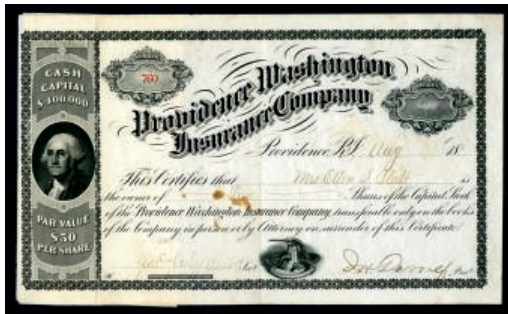 CASH
CAPITAL
$400,000
760
Providence Washington
Insurance Company
Providence, R.I. Aug 18
This Certifies that Mrs Ellen S. is
the owner of Shares of the Capital Stock
of the Providence Washington Insurance Company, transferable only on the books
of the Company in person or by Attorney on surrender of this Certificate.
PAR VALUE
$50
PER SHARE
Sec. Pres.